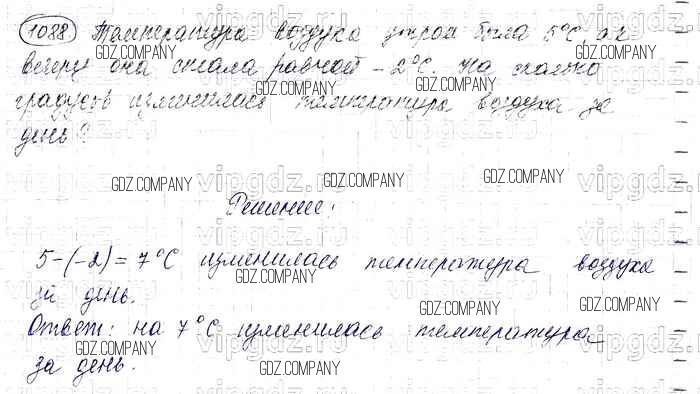 1088 Температура воздуха утром была 5°С, а к
вечеру она стала равной -2°С. На сколько
градусов изменилась температура воздуха за
день?
Решение:
5-(-2)= 7°С изменилась температура воздуха
за день.
Ответ: на 7°С изменилась температура
за день.
GDZ.COMPANY
GDZ.COMPANY
GDZ.COMPANY
GDZ.COMPANY
GDZ.COMPANY
GDZ.COMPANY
GDZ.COMPANY
GDZ.COMPANY
GDZ.COMPANY
GDZ.COMPANY
GDZ.COMPANY
GDZ.COMPANY
GDZ.COMPANY
vipgdz.ru